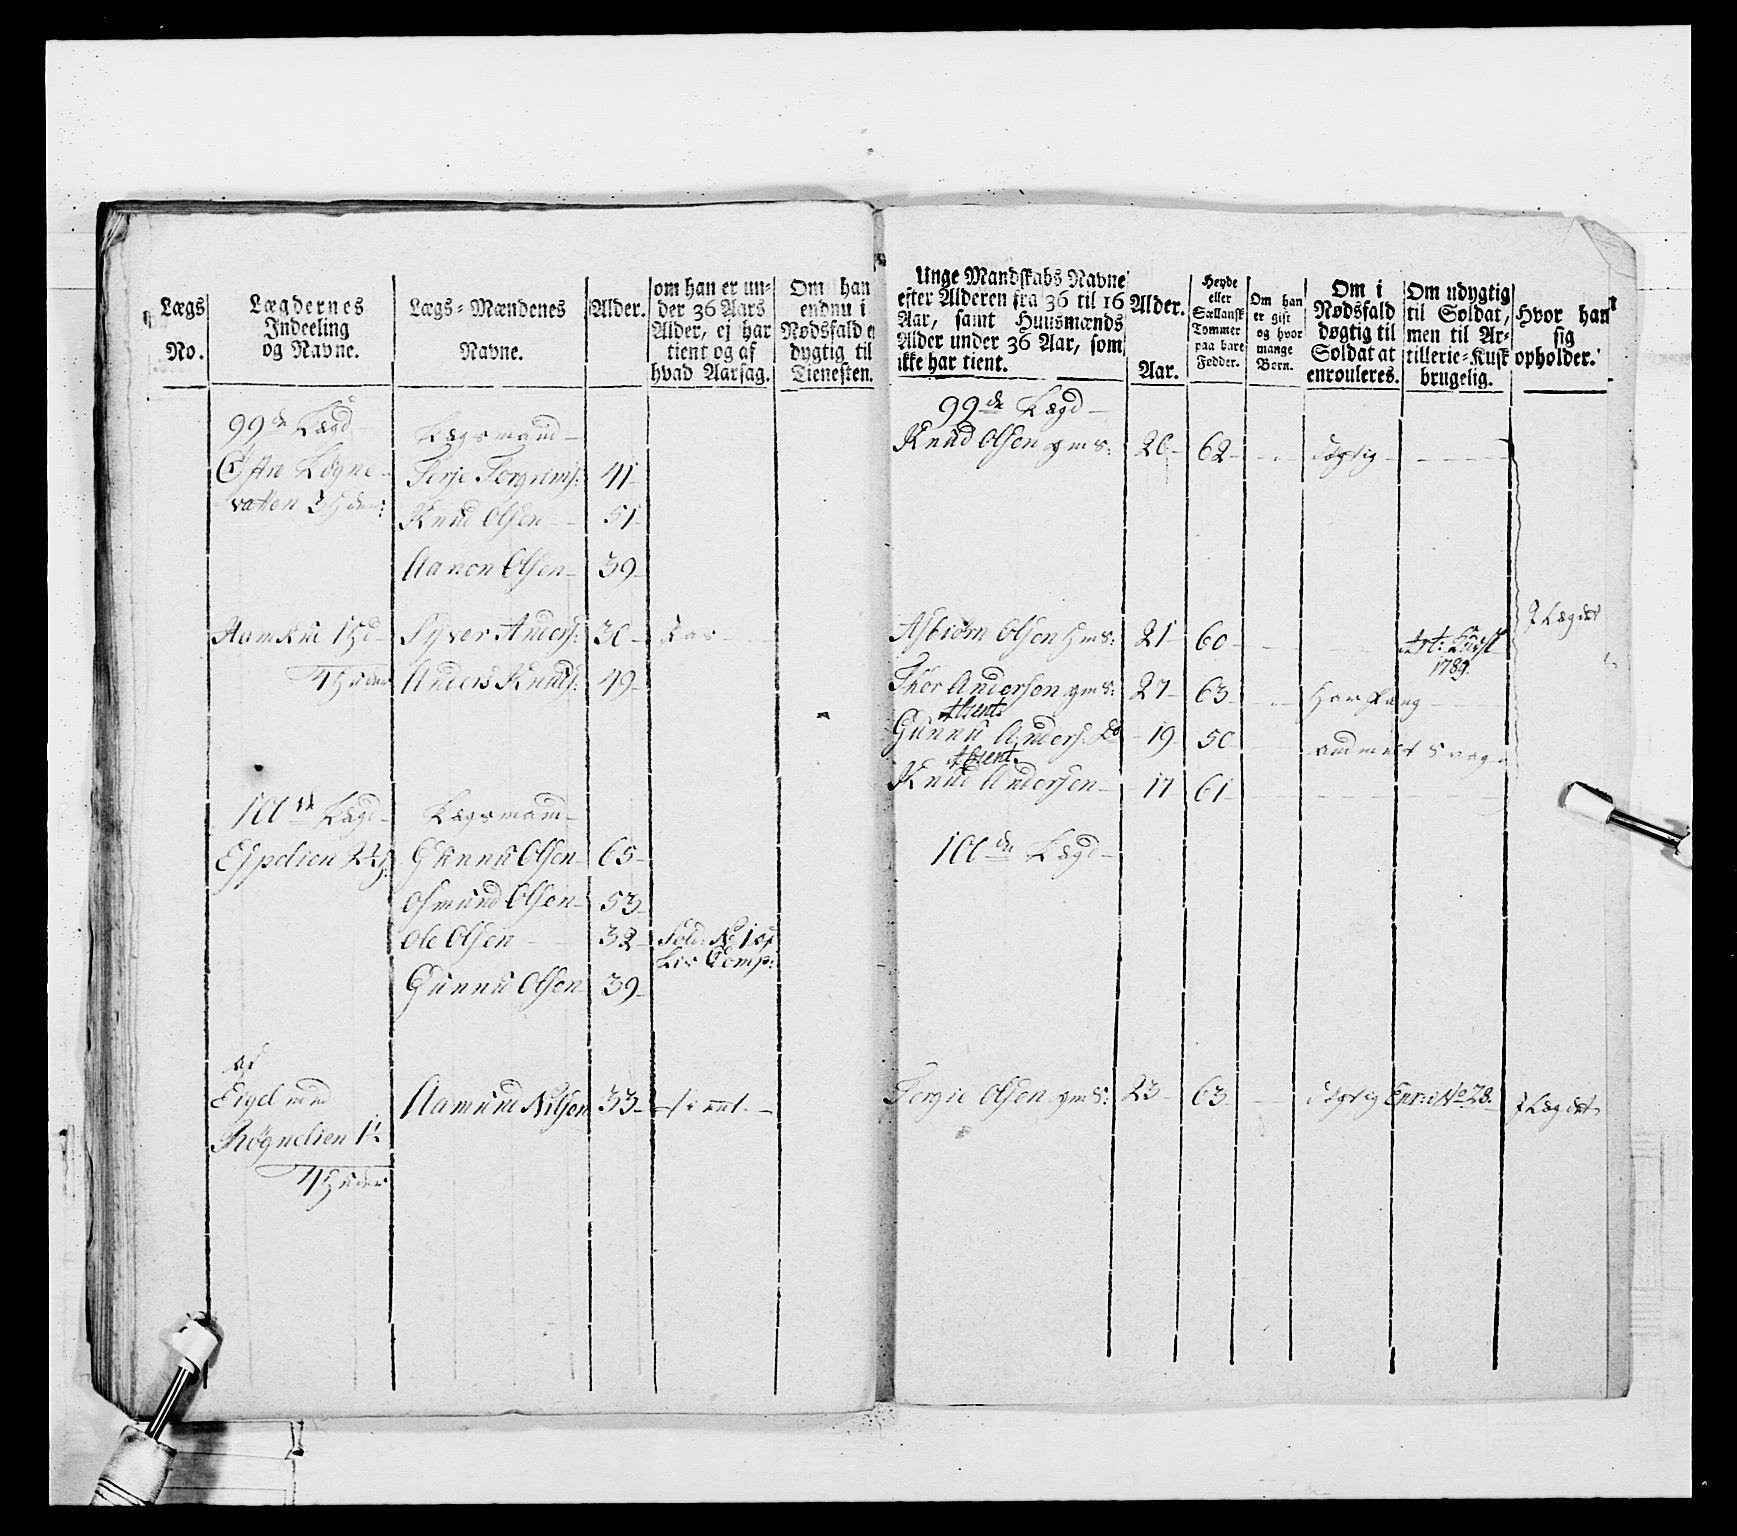 Lægs No.
Lægdernes Indeeling og Navne.
Lægs=Mændenes Navne.
Alder.
om han er un=
der 36 Aars
Alder, ej har
tient og af
hvad Aarsag.
Om han
endnu i
Nødsfald e
dygtig til
Tienesten.
99de Lægd
Lægsmand
Terje Torgrims: 41
vatten 3 Huder:
Knud Olsen 51
Aanon Olsen 39
Syver Anders: 30
4 Huder Anders Knuds: 49
100de Lægd Lægsmand
Espelien Gunnu Olsen 65
Osmund Olsen 53
Ole Olsen 32 Sold: No 1 af
Liv Comp:
Gunnu Olsen 39
af
Eigelund Aamund Nilsen 33 tient
Røgnelien
4 Huder
Unge Mandskabs Navne
efter Alderen fra 36 til 16
Aar, samt Huusmænds
Alder under 36 Aar, som
ikke har tient.
Alder. Aar.
Heyde
eller
Sællandsk
Tommer
paa bare
Fødder.
Om han
er gift
og hvor
mange
Børn.
Om i
Nødsfald
døgtig til
Soldat at
enrouleres.
Om udygtig
til Soldat,
men til Ar=
tillerie=Kusk
brugelig.
Hvor han
sig
opholder.
99de Lægd
Knud Olsen gm S: 26 62 dygtig
Asbiørn Olsen Hm S: 21 60 Art: Kudsk
1789. I Lægdet
Thor Andersen gm S: 27 63
Absent.
Gunnu Anders: Do 19 50
Absent.
Knud Andersen 17 61
100de Lægd
Tergie Olsen gm S: 23 63 dygtig Enr: No 28. I Lægdet